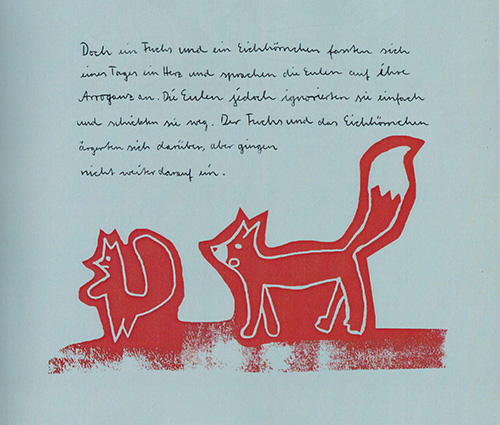 Doch ein Fuchs und ein Eichhörnchen fassten sich
eines Tages ein Herz und sprachen die Eulen auf ihre
Arroganz an. Die Eulen jedoch ignorierten sie einfach
und schickten sie weg. Der Fuchs und das Eichhörnchen
ärgerten sich darüber, aber gingen
nicht weiter darauf ein.